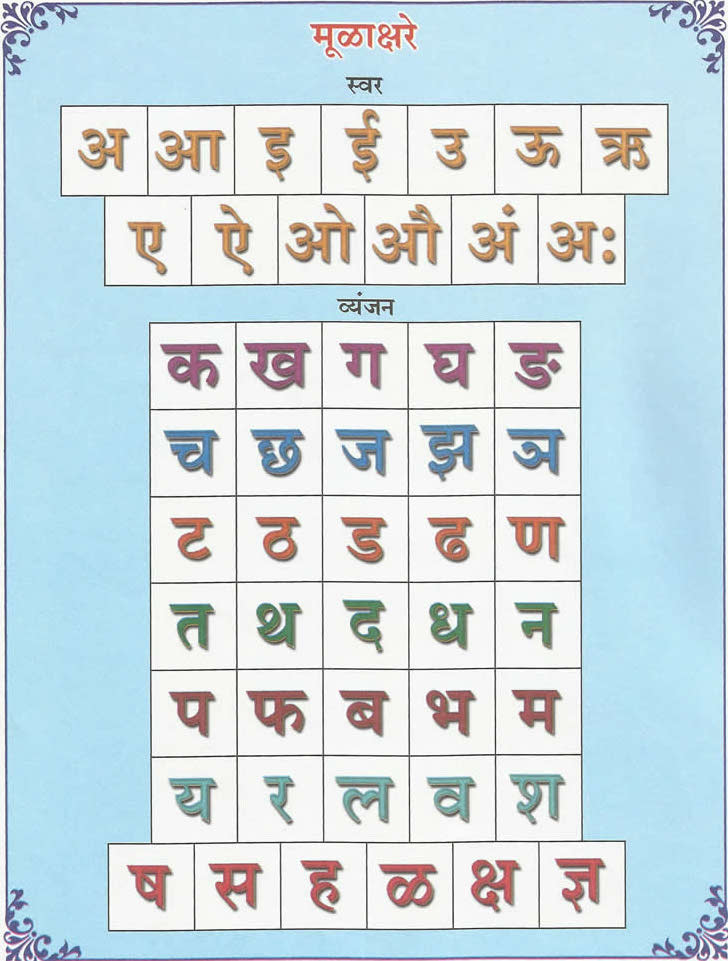 मूळाक्षरे
स्वर
अ आ इ ई उ ऊ ऋ
ए ऐ ओ औ अं अः
व्यंजन
क ख ग घ ङ
च छ ज झ ञ
ट ठ ड ढ ण
त थ द ध न
प फ ब भ म
य र ल व श
ष स ह ळ क्ष ज्ञ